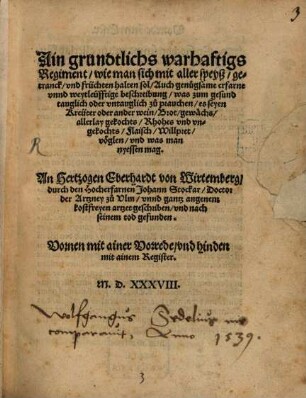 3
Ain grundtlichs warhaftigs
Regiment / wie man sich mit aller speyß / ge-
tranck / vnd früchten halten sol / Auch genügsame erfarne
vnnd weytleüffige beschreibung / was zum gesund
tauglich oder vntauglich zů prauchen / es seyen
Kreütter oder ander wein / Brot / gewächs /
allerlay gekochts / Rhohes vnd vn-
gekochts / Flaisch / Willpret /
vöglen / vnd was man
nyessen mag.
R
An Hertzogen Eberhardt von Wirtemberg /
durch den Hocherfarnen Johann Stockar / Doctor
der Artzney zů Ulm / vnnd gantz angenem
kostfreyen artzet geschriben / vnd nach
seinem tod gefunden.
Vornen mit ainer Vorrede / vnd hinden
mit ainem Register.
M. D. XXXVIII.
Wolfgangus Sedelius me
comparavit, Anno 1539.
3